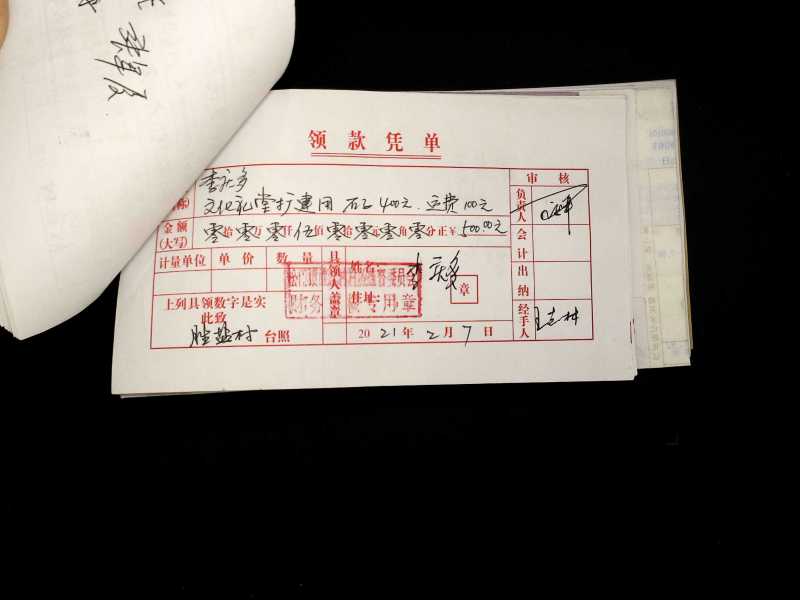 领款凭单
李庆多
称)
文化礼堂扩建用 石工400元.运费100元
金额
(大写)
零拾零万零仟伍佰零拾零元零角零分正￥500.00元
计量单位 单价 数量
具领人盖章
姓名: 李庆多
住址:
章
上列具领数字是实
此致
胜盐村 台照
2021年2月7日
审核
负责人
会计
出纳
经手人
专用章